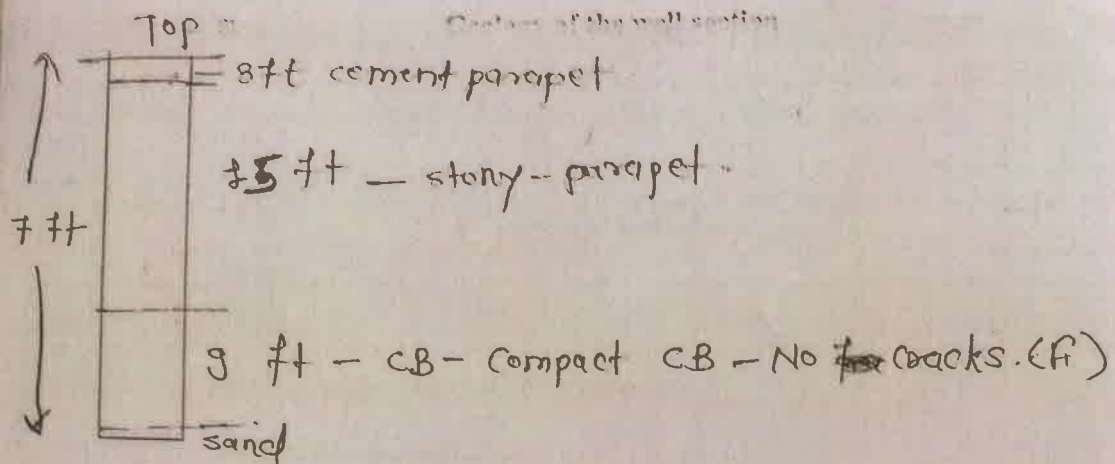 Top
3ft cement parapet
75 ft - stony - parapet.
7 ft
9 ft - CB - Compact CB - No cracks. (F)
sand